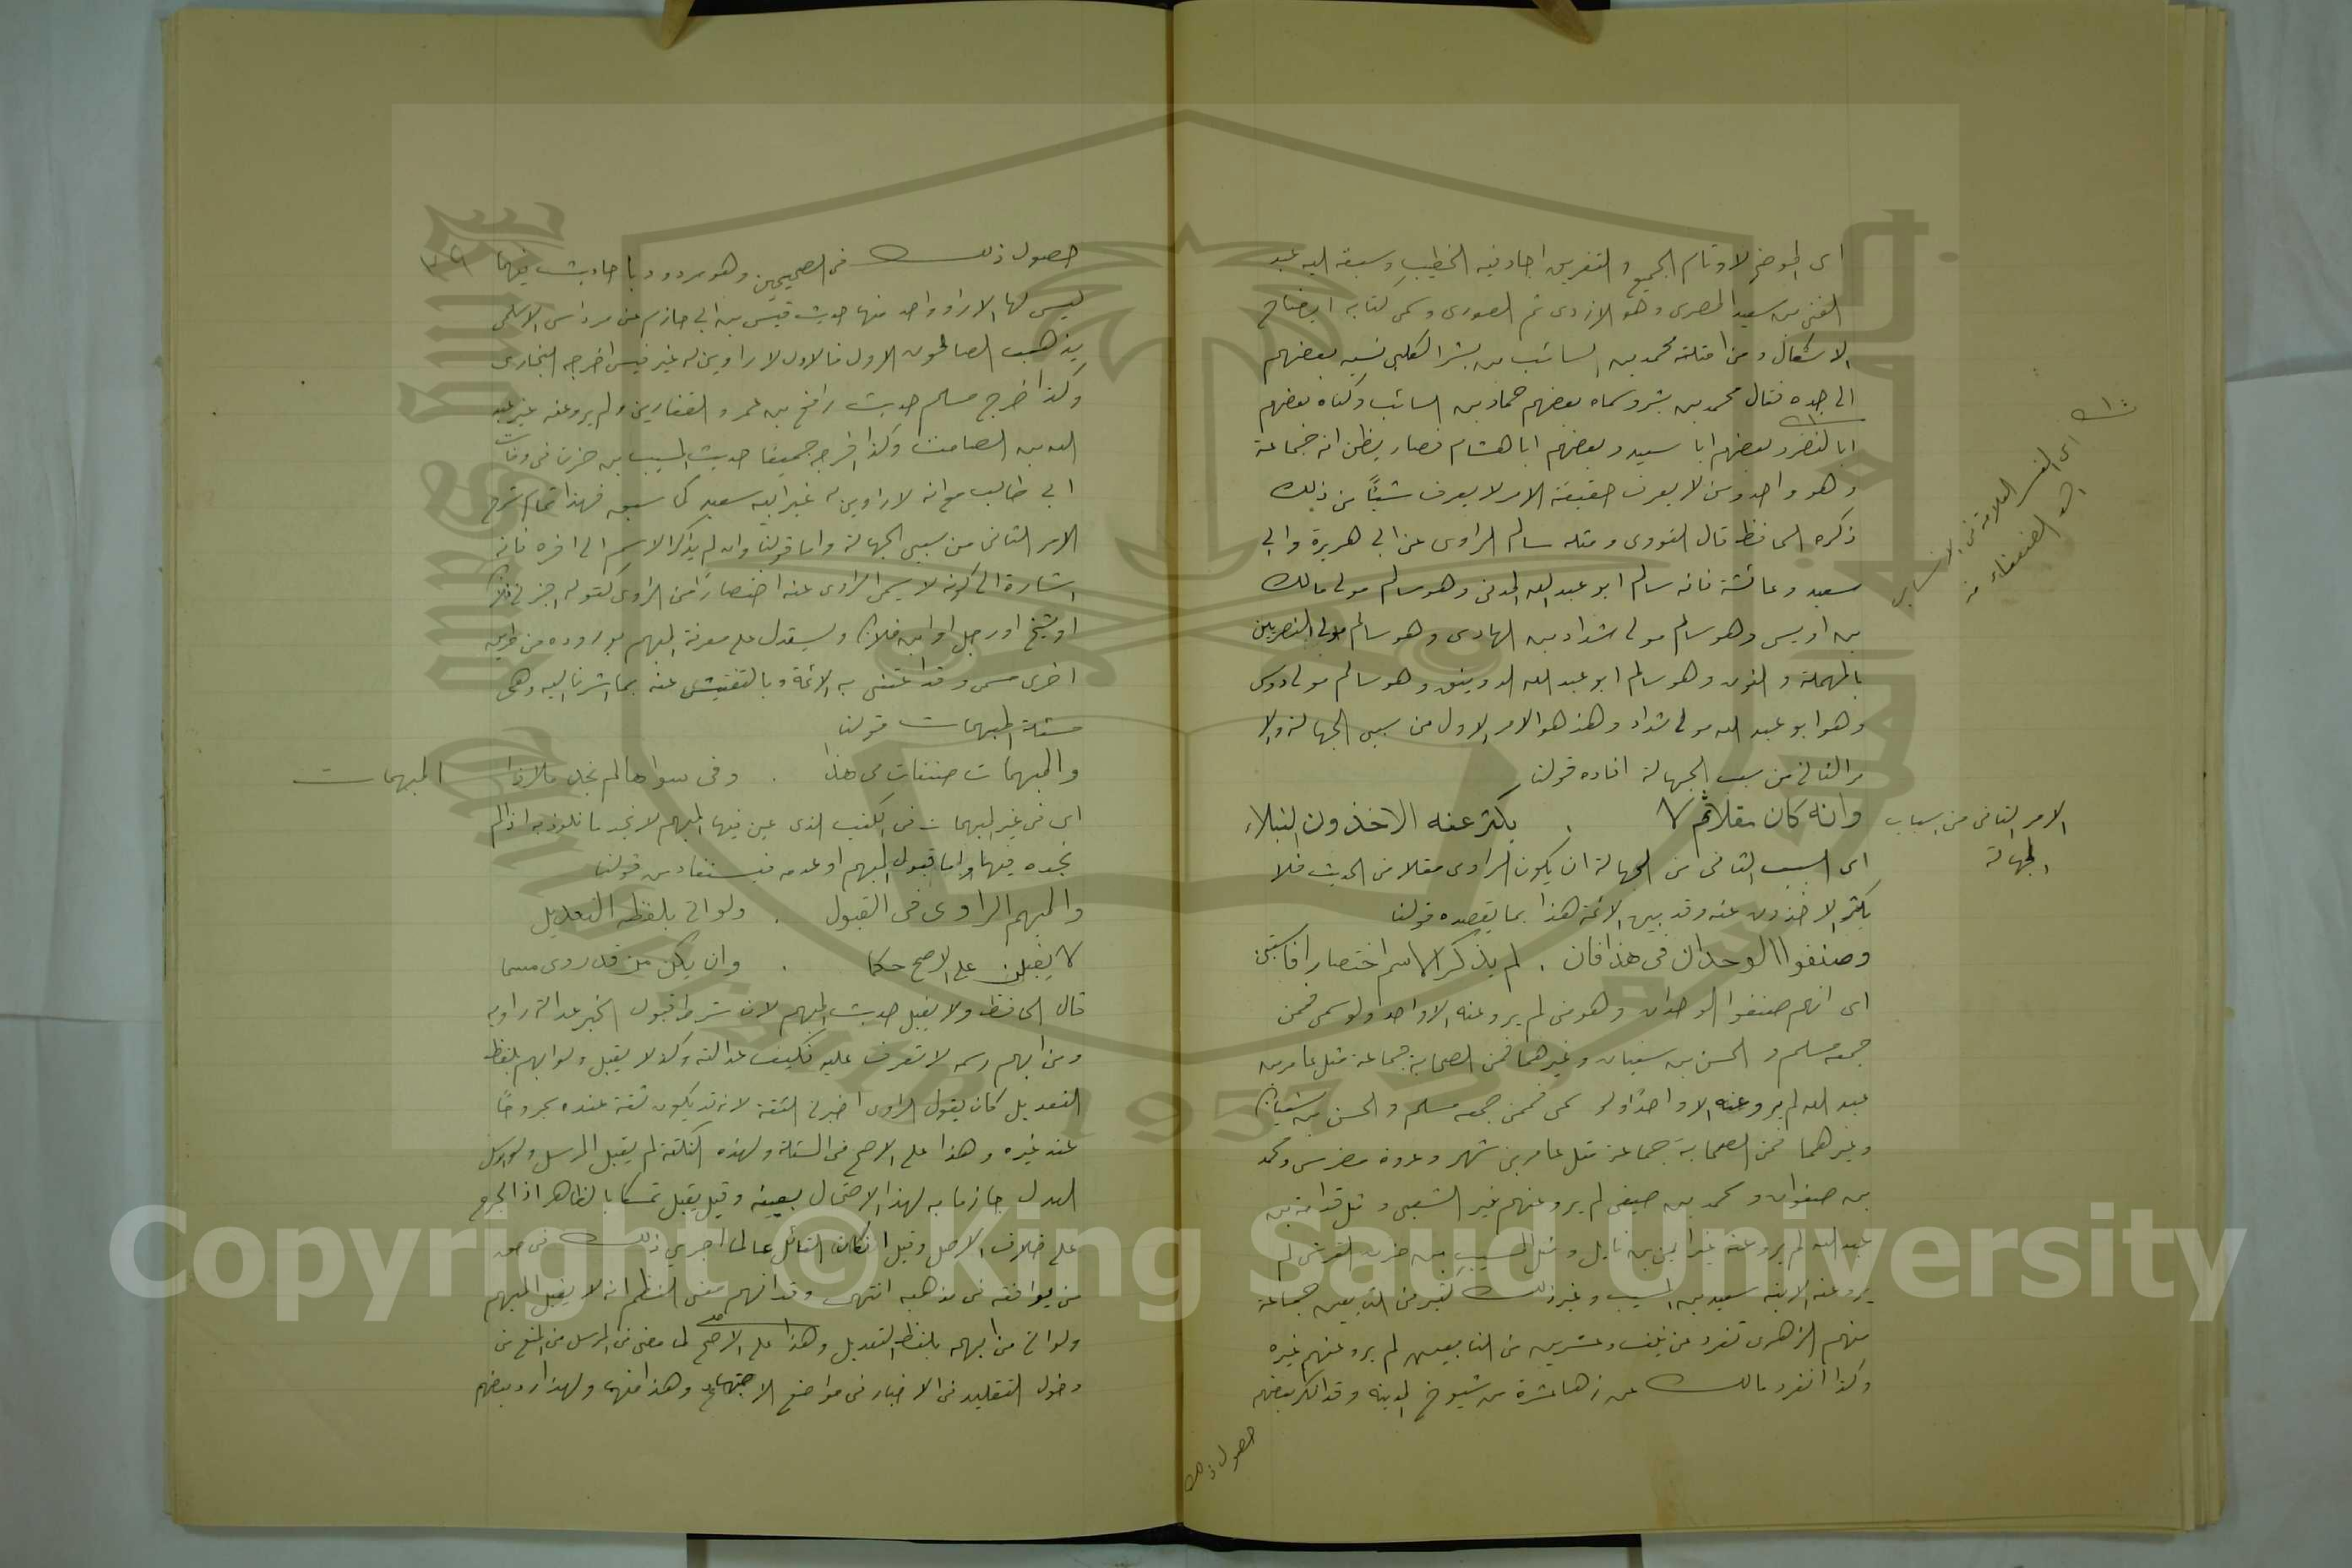 اى الموضح لاوهام الجمع والتفريق اجاد فيه الخطيب وسبقه اليه عبد
الغنى بن سعيد المصرى وهو الازدى ثم الصورى وسمى كتابه ايضاح
الاشكال ومن امثلته محمد بن السائب بن بشر الكلبى نسبه بعضهم
الى جده فقال محمد بن بشر وسماه بعضهم حماد بن السائب وكناه بعضهم
ابا النضر وبعضهم ابا سعيد وبعضهم ابا هشام فصار يظن انه جماعة
وهو واحد ومن لا يعرف حقيقة الامر لا يعرف شيئًا من ذلك
ذكره الحافظ قال النووى ومثله سالم الراوى عن ابى هريرة وابى
سعيد وعائشة فانه سالم ابو عبد الله المدنى وهو سالم مولى مالك
بن اويس وهو سالم مولى شداد بن الهادى وهو سالم مولى النصريين
بالمهملة والنون وهو سالم ابو عبد الله الدوسى وهو سالم مولى دوس
وهو ابو عبد الله مولى شداد وهذ هو الامر الاول من سبى الجهالة والا
مر الثانى من سبب الجهالة افاده قولنا
وانه كان مقلا ثم لا . يكثر عنه الاخذون النبلاء
الامر الثانى من اسباب
الجهالة
اى السبب الثانى من الجهالة ان يكون الراوى مقلا من الحديث فلا
يكثر الاخذون عنه وقد بين الائمة هذا بما يقصده قولنا
وصنفوا الوحدان فى هذا فان . لم يذكر الاسم اختصارا فاستبن
اى انهم صنفوا الوحدان وهو من لم يرو عنه الا واحد ولو سمى فممن
جمعه مسلم والحسن بن سفيان وغيرهما فمن الصحابة جماعة مثل عامر بن
عبد الله لم يرو عنه الا واحدًا ولو سمى فممن جمعه مسلم والحسن بن سفيان
وغيرهما فمن الصحابة جماعة مثل عامر بن شهر وعروة مضرس ومحمد
بن صفوان ومحمد بن صيفى لم يرو عنهم غير الشعبى ومثل قدامة بن
عبد الله لم يرو عنه غير ايمن بن نابل ومثل المسيب بن حزن القرشى لم
يرو عنه الا ابنه سعيد بن المسيب وغير ذلك كثير من التابعين جماعة
منهم الزهرى تفرد عن نيف وعشرين من التابعين لم يرو عنهم غيره
وكذا انفرد مالك عن زها عشرة من شيوخ المدينه وقد انكر بعضهم
حصول ذلك
حصول ذلك فى الصحيحين وهو مردود باحاديث فيهما
ليس لها الا راو واحد منها حديث قيس بن ابى حازم عن مرداس الاسلمى
يذهب الصالحون الاول فالاول لا راوى له غير قيس اخرجه البخارى
وكذا اخرج مسلم حديث رافع بن عمرو الغفارى ولم يرو عنه غير عبد
الله بن الصامت وكذا اخرجه جميعًا حديث المسيب بن حزن فى وفات
ابى طالب مع انه لا راوى له غير ابنه سعيد كما سبق فهذا تمام شرح
الامر الثانى من سببى الجهالة واما قولنا وان لم يذكر الاسم الى اخره فانه
اشارة الى كونه لا يسمى الراوى عنه اختصارًا من الراوى كقوله اخبرنى فلان
او شيخ او رجل او ابن فلان ويستدل على معرفة المبهم بوروده من طريق
اخرى مسمى وقد اعتنى به الائمة وبالتفتيش عنه بما اشرنا اليه وهى
مسئلة المبهمات قولنا
والمبهمات صنفات من هذا . وفى سواها لم نجد ملاذا
المبهمات
اى فى غير المبهمات فى الكتب الذى عين فيها المبهم لا نجد ما نلوذ به اذا لم
نجده فيها واما قبول المبهم او عدمه فيستفاد من قولنا
والمبهم الراوى فى القبول . ولو اتى بلفظه التعديل
لا يقبلن على الاصح حكما . وان يكن من قد روى مسما
قال الحافظ ولا يقبل حديث المبهم لان شرط قبول الخبر عدالة راويه
ومن ابهم اسمه لا تعرف عليه فكيف عدالته وكذا لا يقبل ولو ابهم بلفظ
التعديل كان يقول الراوى اخبرنى الثقة لانه قد يكون ثقة عنده مجروحًا
عند غيره وهذا على الاصح فى المسئلة ولهذه النكتة لم يقبل المرسل ولو ارسل
العدل جازما به لهذا الاحتمال بعينه وقيل يقبل تمسكا بالظاهر اذ الجرح
على خلاف الاصل وقيل ان كان القائل عالما اجرى ذلك فى حق
من يوافقه فى مذهبه انتهى وقد افهم معنى النظم انه لا يقبل المبهم
ولو اتى من ابهمه بلفظ التعديل وهذا على الاصح لما مضى فى المرسل من المنع من
دخول التقليد فى الاخبار فى مواضع الاجتهاد وهذا منها ولهذا رد بعضهم
Copyright © King Saud University
1957